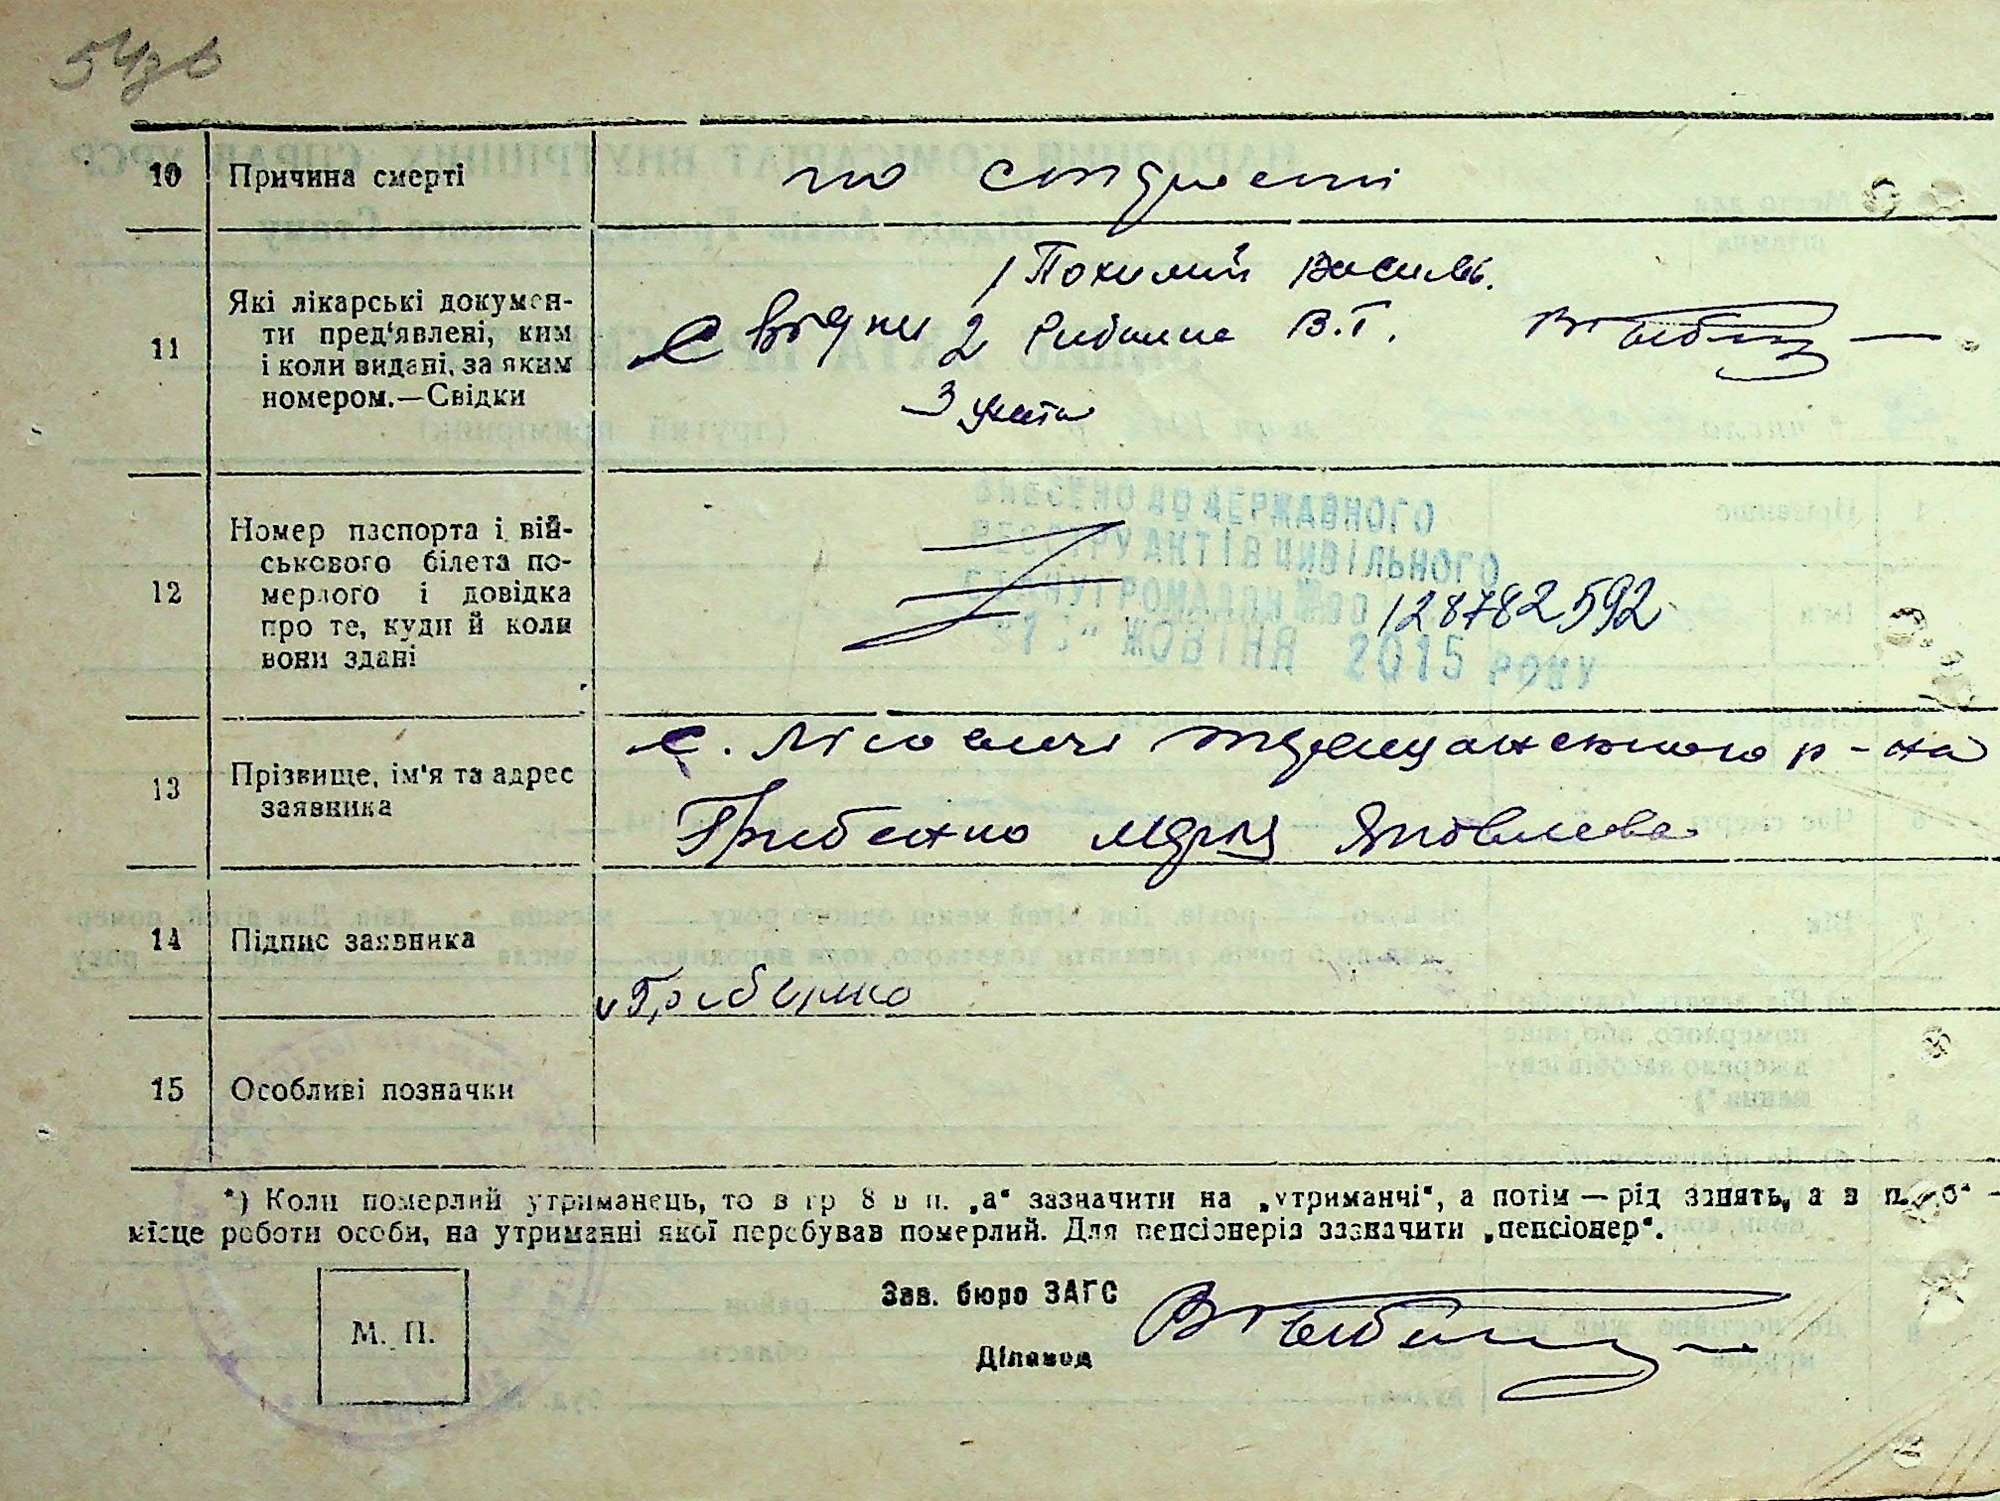 10 Причина смерті по старості
11 Які лікарські докумен-
ти пред'явлені, ким
і коли видані, за яким
номером.—Свідки
1 Похилий Василь.
Свідки 2 Рибалка В.Г.
3
12 Номер паспорта і вій-
ськового білета по-
мерлого і довідка
про те, куди й коли
вони здані
ВНЕСЕНО ДО ДЕРЖАВНОГО
РЕЄСТРУ АКТІВ ЦИВІЛЬНОГО
СТАНУ ГРОМАДЯН №00128782592
ЖОВТНЯ 2015 РОКУ
13 Прізвище, ім'я та адрес
заявника
с. Лісовичі Таращанского р-на
Грибенко Яковлевна
14 Підпис заявника
Грибенко
15 Особливі позначки
*) Коли померлий утриманець, то в гр 8 в п. „а“ зазначити на „утриманчі“, а потім — рід занять, а в п. „б“ -
місце роботи особи, на утриманні якої перебував померлий. Для пенсіонерів зазначити „пенсіонер“.
М. П.
Зав. бюро ЗАГС
Діловод